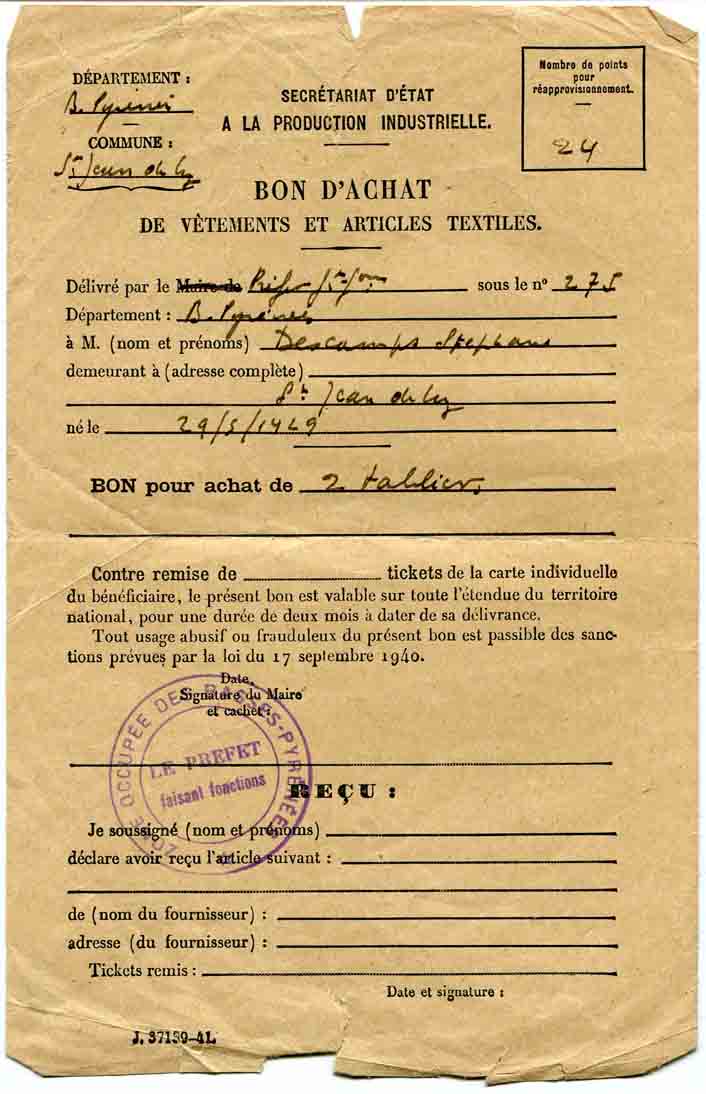 DÉPARTEMENT :
B. Pyrénées
COMMUNE :
St Jean de Luz
SECRÉTARIAT D'ÉTAT
A LA PRODUCTION INDUSTRIELLE.
Nombre de points
pour
réapprovisionnement.
24
BON D'ACHAT
DE VÊTEMENTS ET ARTICLES TEXTILES.
Délivré par le Maire de sous le nº 275
Département : B. Pyrénées
à M. (nom et prénoms) Descamps Stephane
demeurant à (adresse complète)
St Jean de Luz
né le 29/5/1929
BON pour achat de 2 tabliers
Contre remise de tickets de la carte individuelle
du bénéficiaire, le présent bon est valable sur toute l'étendue du territoire
national, pour une durée de deux mois à dater de sa délivrance.
Tout usage abusif ou frauduleux du présent bon est passible des sanc-
tions prévues par la loi du 17 septembre 1940.
Date,
Signature du Maire
et cachet :
ZONE OCCUPÉE DES BASSES-PYRÉNÉES
LE PREFET
faisant fonctions
REÇU :
Je soussigné (nom et prénoms)
déclare avoir reçu l'article suivant :
de (nom du fournisseur) :
adresse (du fournisseur) :
Tickets remis :
Date et signature :
J. 37139-41.